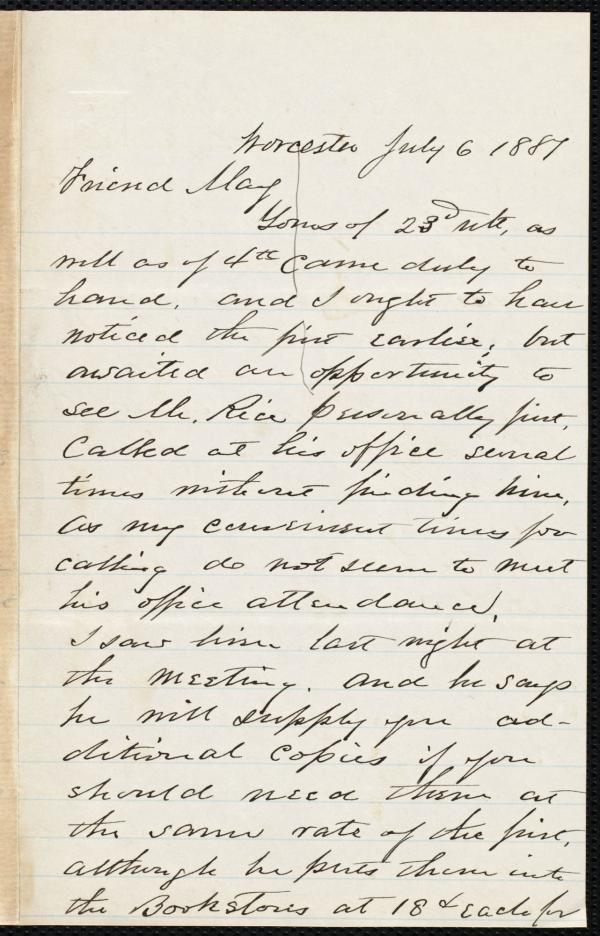 Worcester July 6 1887
Friend May
Yours of 23d ult, as
well as of 4th came duly to
hand, and I ought to have
noticed the first earlier, but
awaited an opportunity to
see Mr. Rice personally first.
Called at his office several
times without finding him,
as my convenient times for
calling do not seem to meet
his office attendance.
I saw him last night at
the meeting. and he says
he will supply you ad-
ditional copies if you
should need them at
the same rate of the first,
although he puts them into
the Bookstores at 18 each for